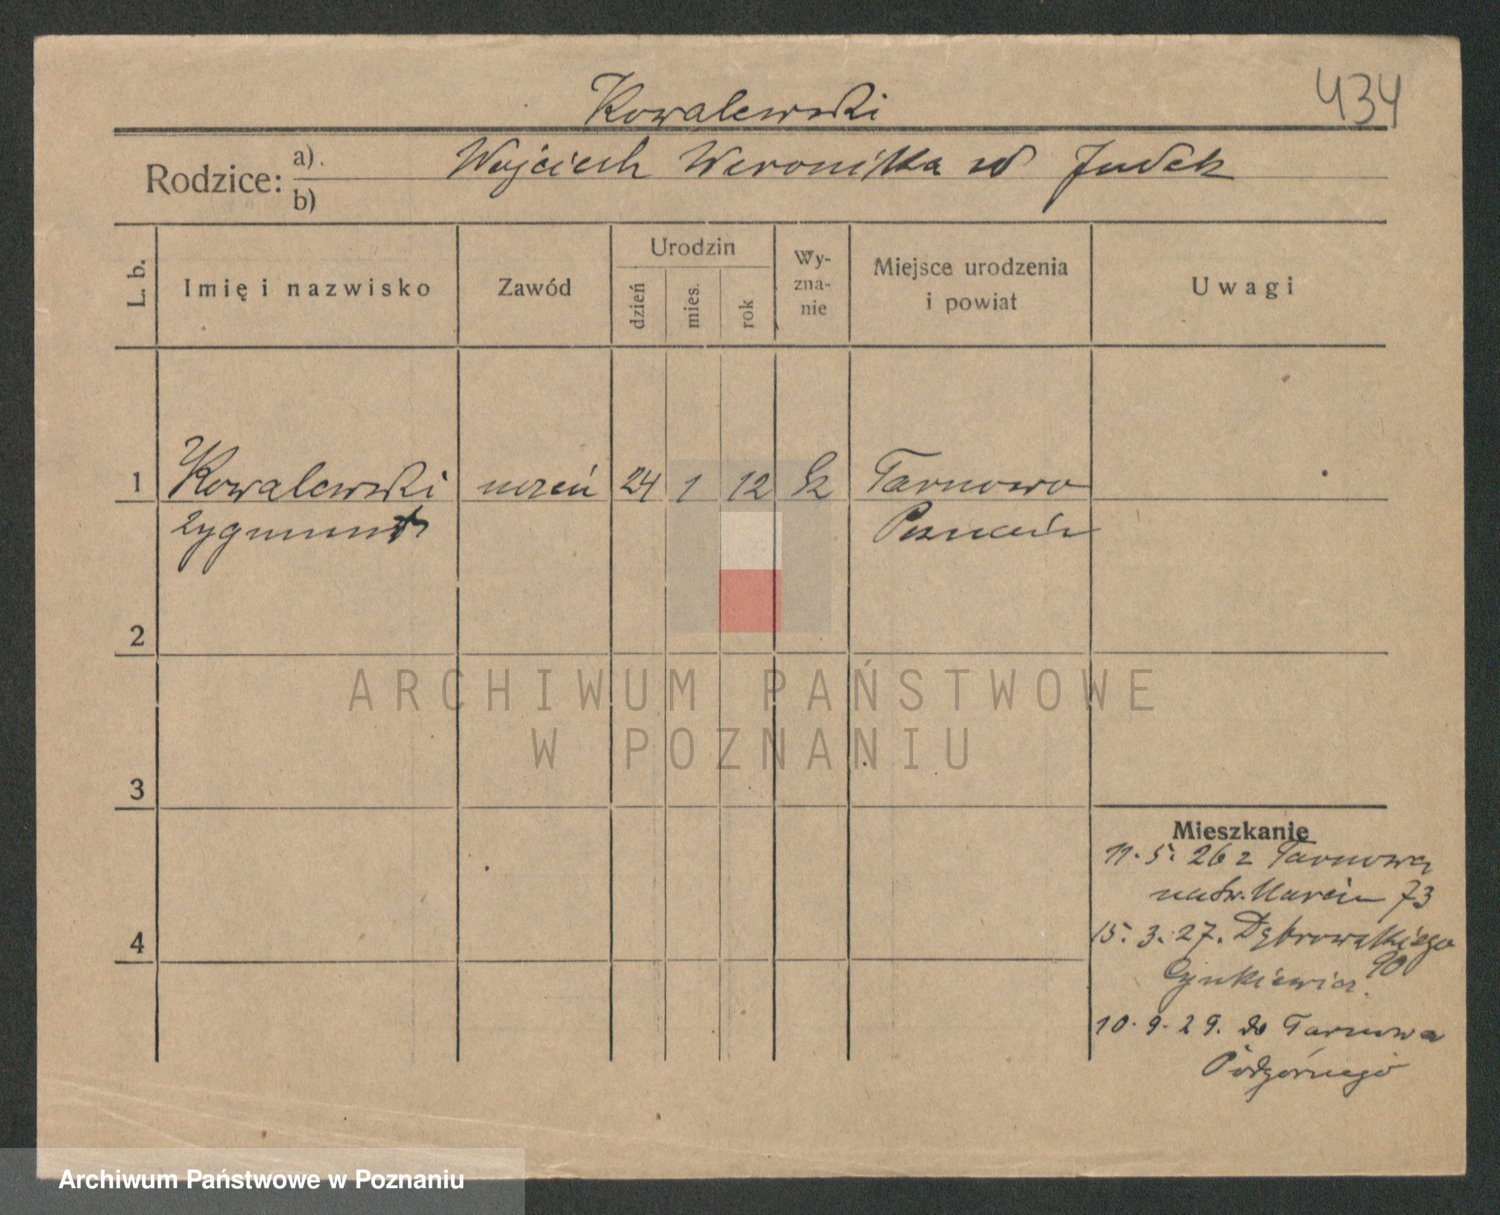 434
Kowalewski
Rodzice: a) Wojciech Weronika
b)
L. b.
Imię i nazwisko
Zawód
Urodzin
dzień
mies.
rok
Wy-
zna-
nie
Miejsce urodzenia
i powiat
Uwagi
1 Kowalewski uczeń 24 1 12 Tarnowo
Zygmunt Poznań
2
3
4
Mieszkanie
11.5.26 z Tarnowa
na Św. Marcin 73
15.3.27. Dąbrowskiego
90
10.9.29. do Tarnowa
Podgórnego
ARCHIWUM PAŃSTWOWE
W POZNANIU
Archiwum Państwowe w Poznaniu